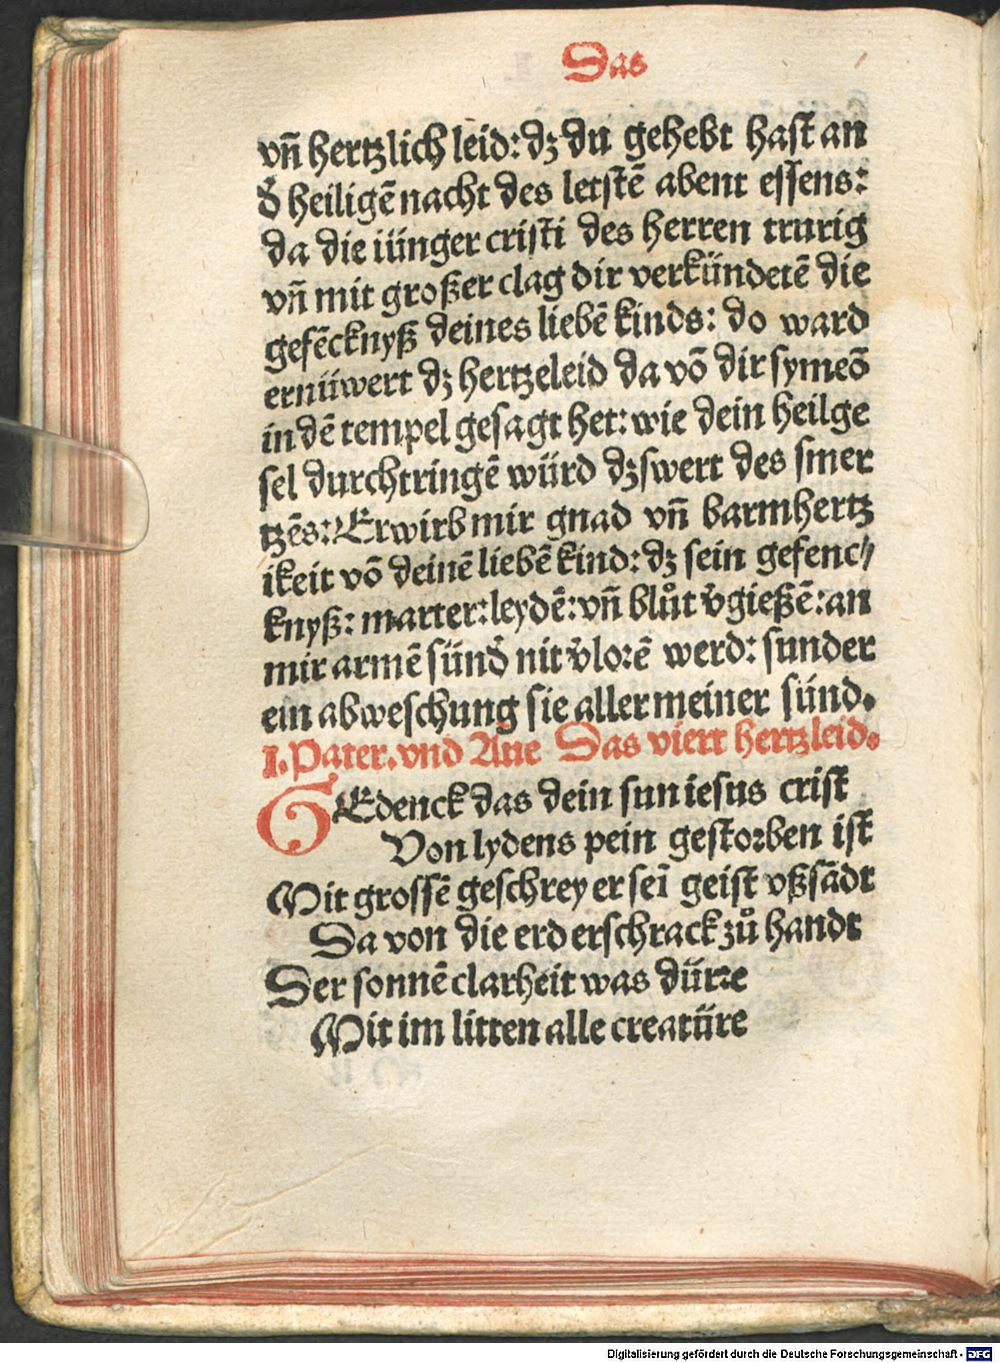 Das
vn̄ hertzlich leid: dz du gehebt hast an
d̕ heiligē nacht des letstē abent essens:
da die iünger cristi des herren trurig
vn̄ mit großer clag dir verkündetē die
gefēcknyß deines liebē kinds: do ward
ernüwert dz hertzeleid da vō dir symeō
in dē tempel gesagt het: wie dein heilge
sel durchtringē würd dz swert des smer
tzēs: Erwirb mir gnad vn̄ barmhertz
ikeit vō deinē liebē kind: dz sein gefenc⸗
knyß: marter: leydē: vn̄ blůt v̕gießē: an
mir armē sünd̕ nit v̕lorē werd: sunder
ein abweschung sie aller meiner sünd.
I. Pater. vnd Aue Das viert hertzleid.
GEdenck das dein sun iesus crist
Von lydens pein gestorben ist
Mit grossē geschrey er sei̅ geist vßsādt
Da von die erd erschrack zů handt
Der sonnē clarheit was dürre
Mit im litten alle creatüre
Digitalisierung gefördert durch die Deutsche Forschungsgemeinschaft - DFG